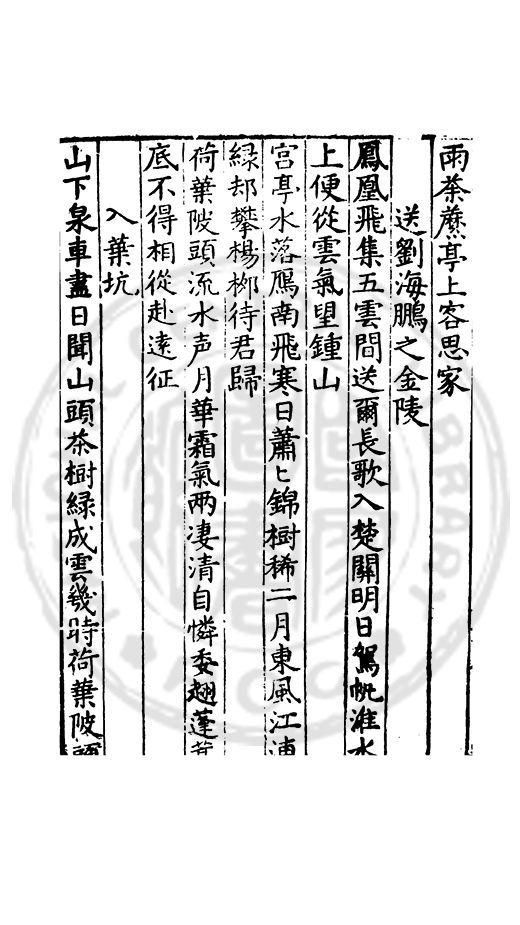 雨茶蘼亭上客思家
送劉海鵬之金陵
鳳凰飛集五雲間送爾長歌入楚關明日駕帆淮水
上便從雲氣望鍾山
宮亭水落鴈南飛寒日蕭匕錦樹稀二月東風江浦
緑却攀楊栁待君歸
荷葉陂頭流水声月華霜氣兩凄清自憐委翅蓬蒿
底不得相從赴遠征
入葉坑
山下泉車盡日聞山頭茶樹緑成雲幾時荷葉陂頭